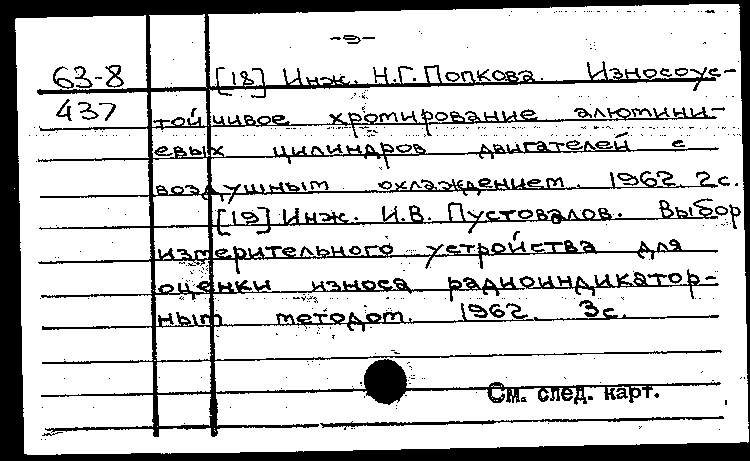 -9-
63-8 [18] Инж. Н.Г. Попкова. Износоус-
437 тойчивое хромирование алюмини-
евых цилиндров двигателей с
воздушным охлаждением. 1962. 2с.
[19] Инж. И.В. Пустовалов. Выбор
измерительного устройства для
оценки износа радиоиндикатор-
ным методом. 1962. 3с.
См. след. карт.